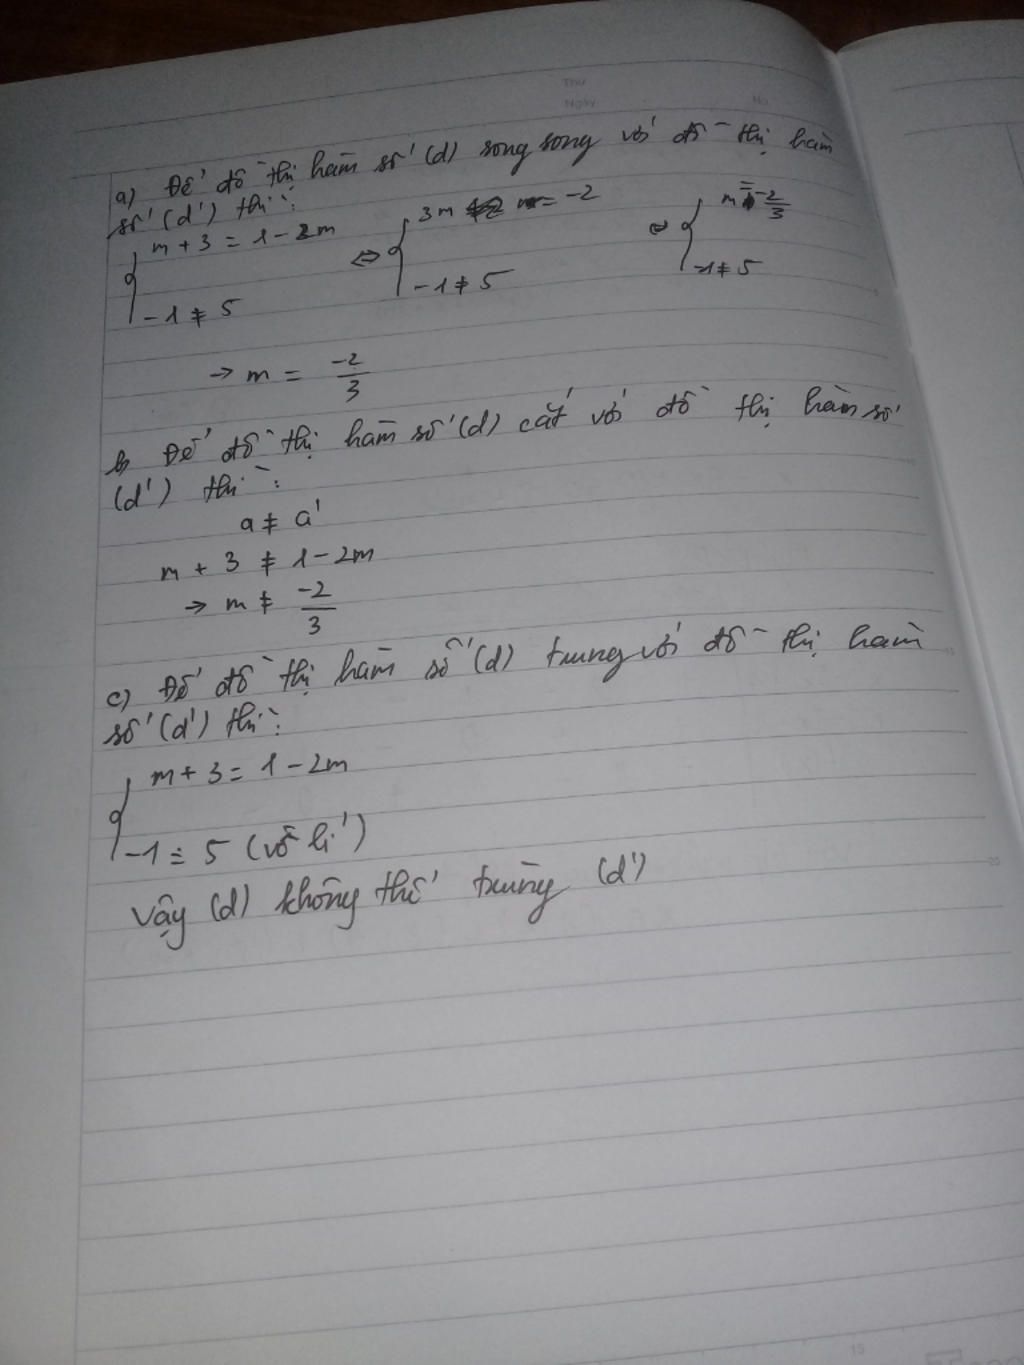 Thứ
Ngày No.
a) Để đồ thị hàm số (d) song song với đồ thị hàm
số (d') thì:
m + 3 = 1 - 2m ⇔ 3m = -2 ⇔ m = -2/3
-1 ≠ 5 -1 ≠ 5 -1 ≠ 5
→ m = -2/3
b) Để đồ thị hàm số (d) cắt với đồ thị hàm số
(d') thì:
a ≠ a'
m + 3 ≠ 1 - 2m
→ m ≠ -2/3
c) Để đồ thị hàm số (d) trung với đồ thị hàm
số (d') thì:
m + 3 = 1 - 2m
-1 = 5 (vô lí)
Vậy (d) không thể trùng (d')
15